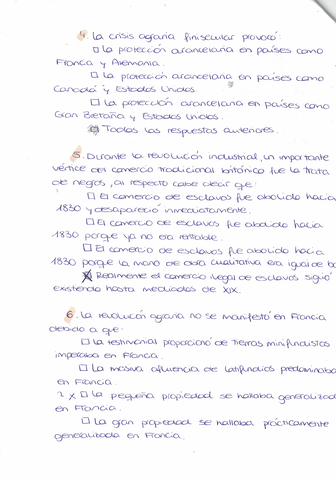 4. La crisis agraria finisecular provocó:
□ La protección arancelaria en países como
Francia y Alemania.
□ La protección arancelaria en países como
Canadá y Estados Unidos.
□ La protección arancelaria en países como
Gran Bretaña y Estados Unidos.
☒ Todas las respuestas anteriores.
5. Durante la revolución industrial, un importante
vértice del comercio tradicional británico fue la trata
de negros, al respecto cabe decir que:
□ El comercio de esclavos fue abolido hacia
1830 y desapareció inmediatamente.
□ El comercio de esclavos fue abolido hacia
1830 porque ya no era rentable.
□ El comercio de esclavos fue abolido hacia
1830 porque la mano de obra cualitativa era igual de ba
☒ Realmente el comercio ilegal de esclavos siguió
existiendo hasta mediados de XIX.
6. La revolución agraria no se manifestó en Francia
debido a que:
□ La testimonial proporción de tierras minifundistas
imperaba en Francia.
□ La masiva afluencia de latifundios predominaba
en Francia.
2 x □ La pequeña propiedad se hallaba generalizad
en Francia.
□ La gran propiedad se hallaba prácticamente
generalizada en Francia.